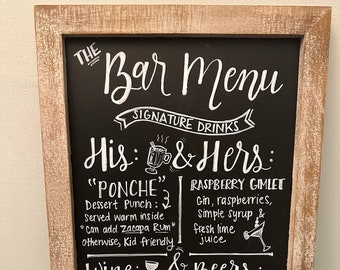 THE
Bar Menu
SIGNATURE DRINKS
His: & Hers:
"PONCHE"
Dessert Punch:
served warm inside
*Can add Zacapa Rum*
otherwise, Kid friendly
RASPBERRY GIMLET
Gin, raspberries,
simple syrup &
fresh lime
juice
Wine: & Beers